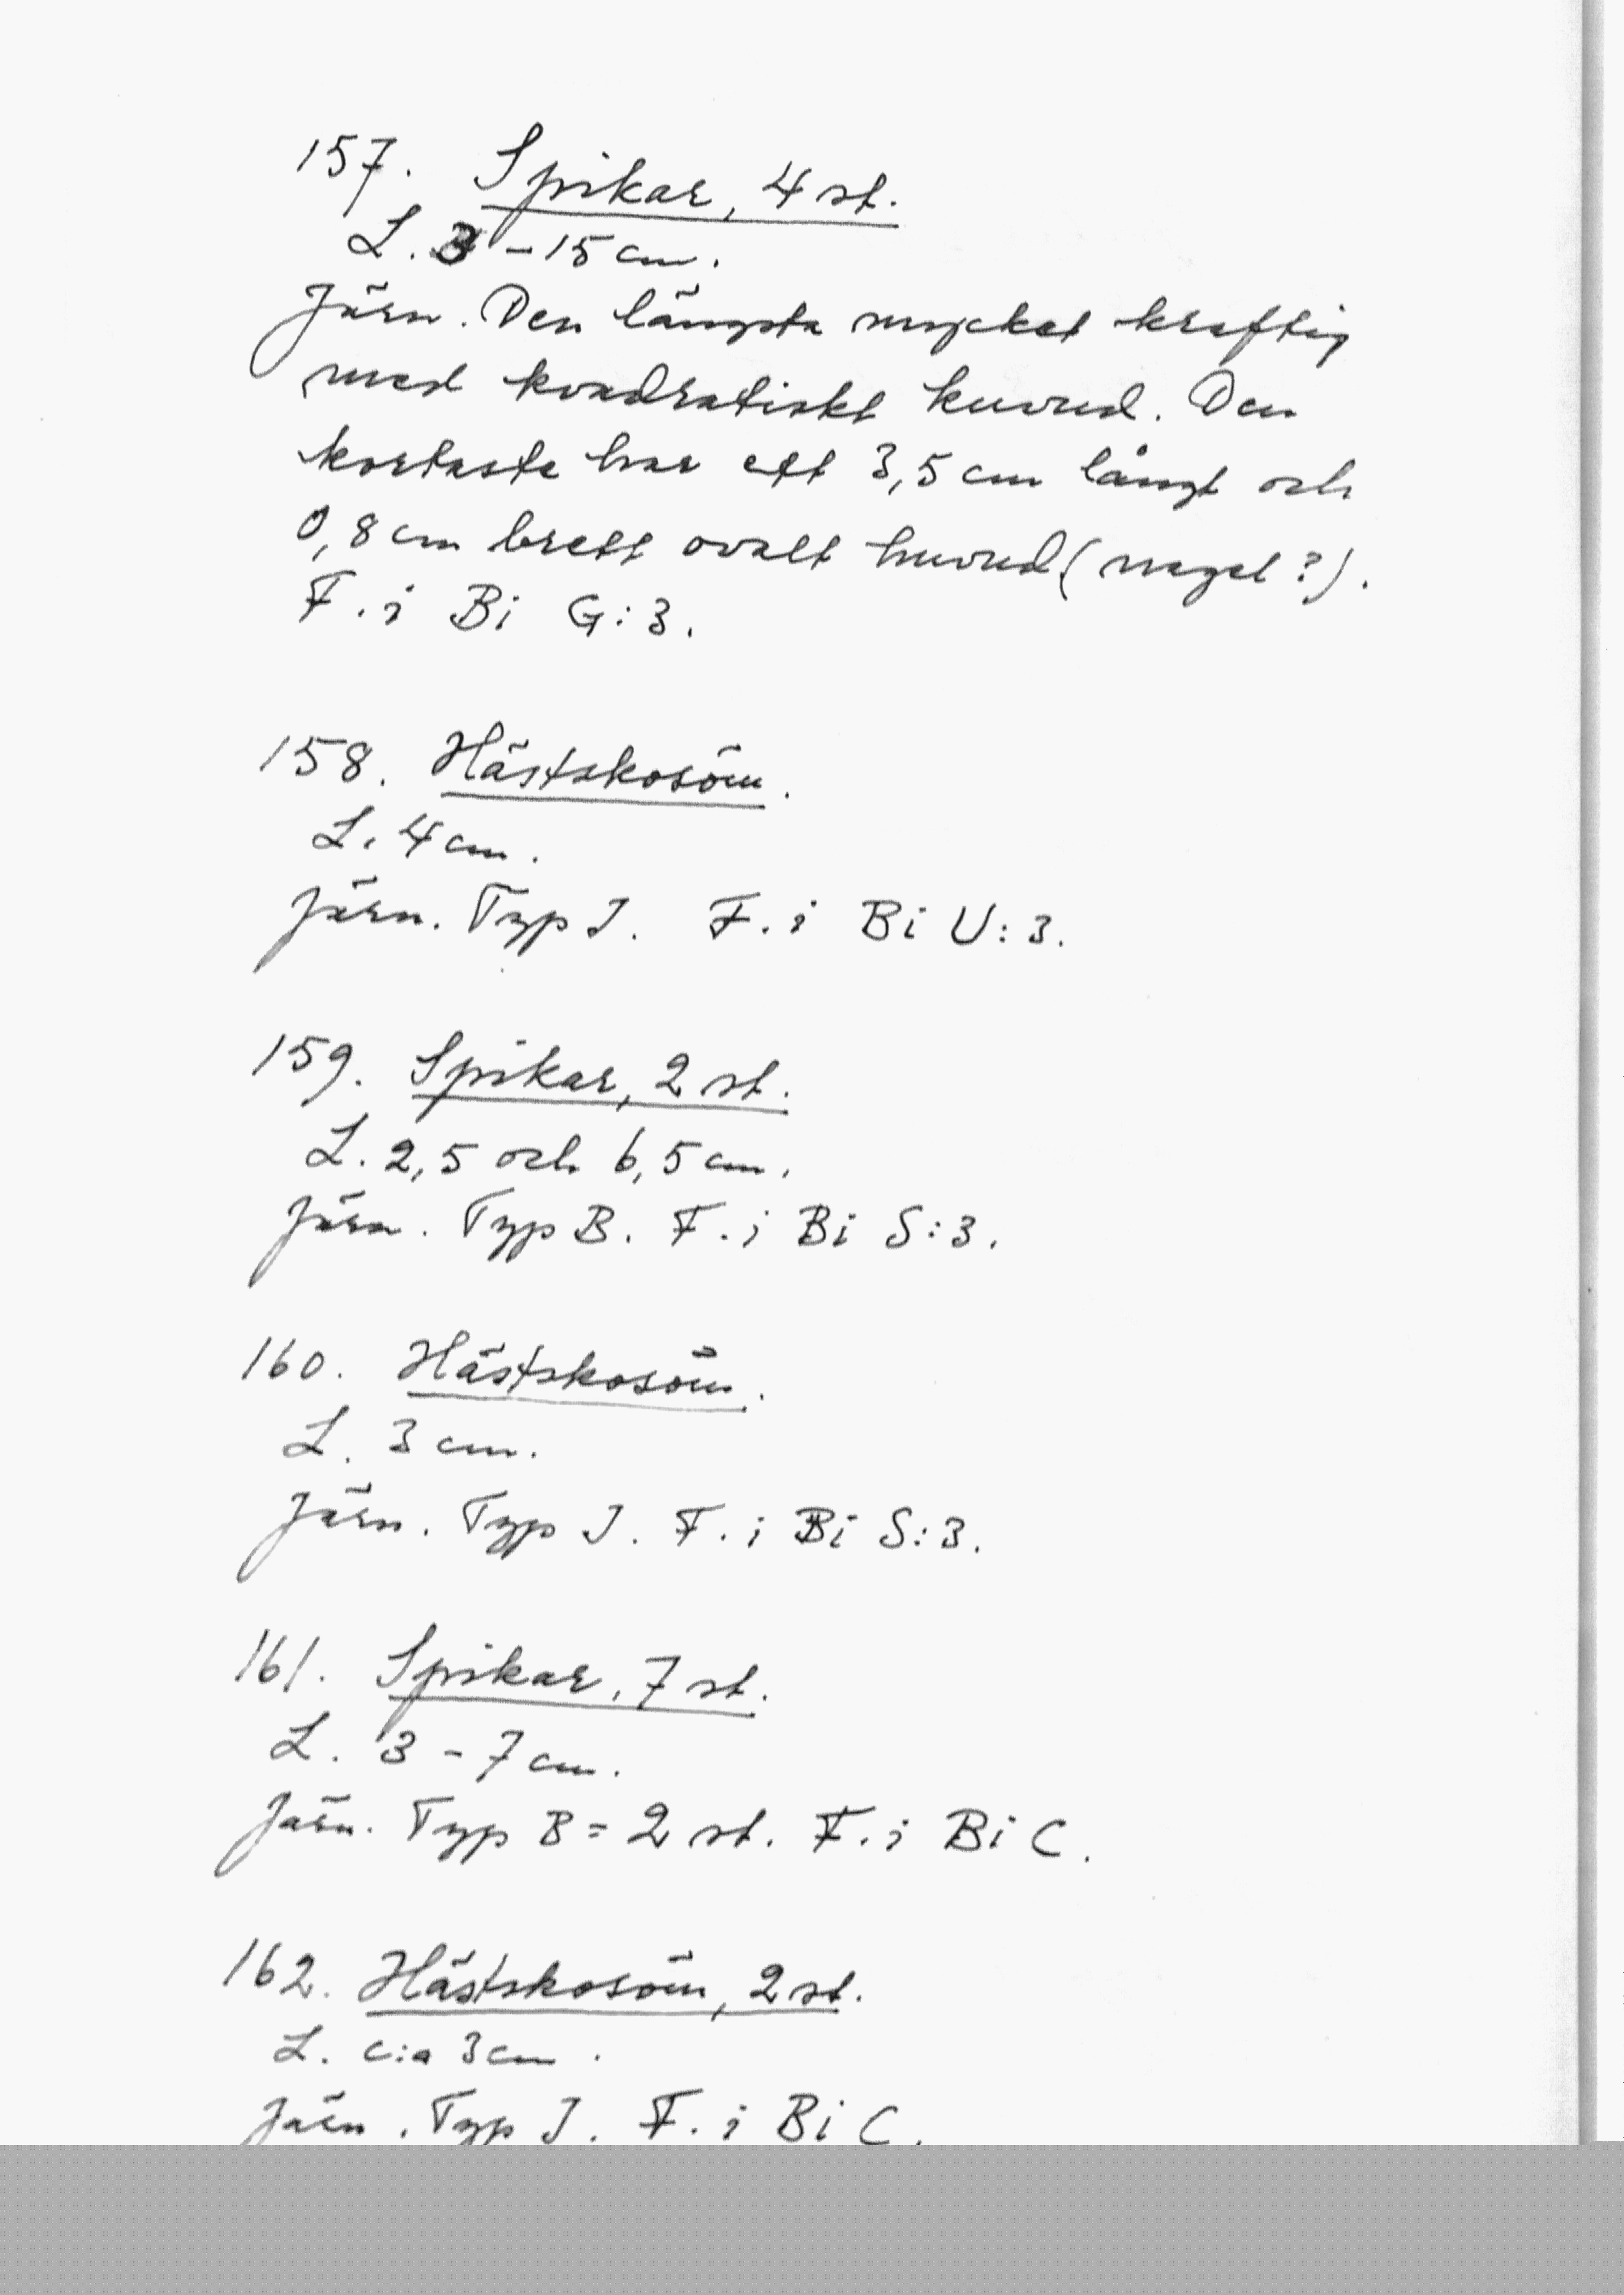 157. Spikar, 4 st.
L. 3 - 15 cm.
Järn. Den längsta mycket kraftig
med kvadratiskt huvud. Den
kortaste har ett 3,5 cm långt och
0,8 cm brett ovalt huvud (nagel?).
F. i Bi G:3.
158. Hästskosöm.
L. 4 cm.
Järn. Typ I. F. i Bi U:3.
159. Spikar, 2 st.
L. 2,5 och 6,5 cm.
Järn. Typ B. F. i Bi S:3.
160. Hästskosöm.
L. 3 cm.
Järn. Typ I. F. i Bi S:3.
161. Spikar, 7 st.
L. 3 - 7 cm.
Järn. Typ B = 2 st. F. i Bi C.
162. Hästskosöm, 2 st.
L. c:a 3 cm.
Järn. Typ I. F. i Bi C.